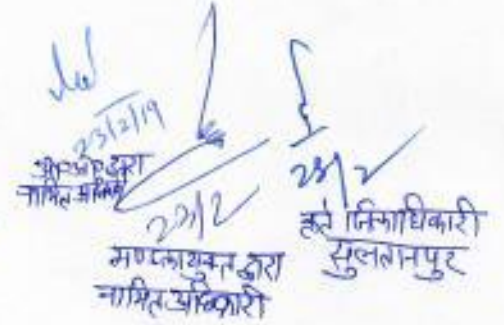 23/2/19
द्वारा
नामित
23/2
मण्डलायुक्त द्वारा
नामित अधिकारी
23/2
कृते जिलाधिकारी
सुलतानपुर